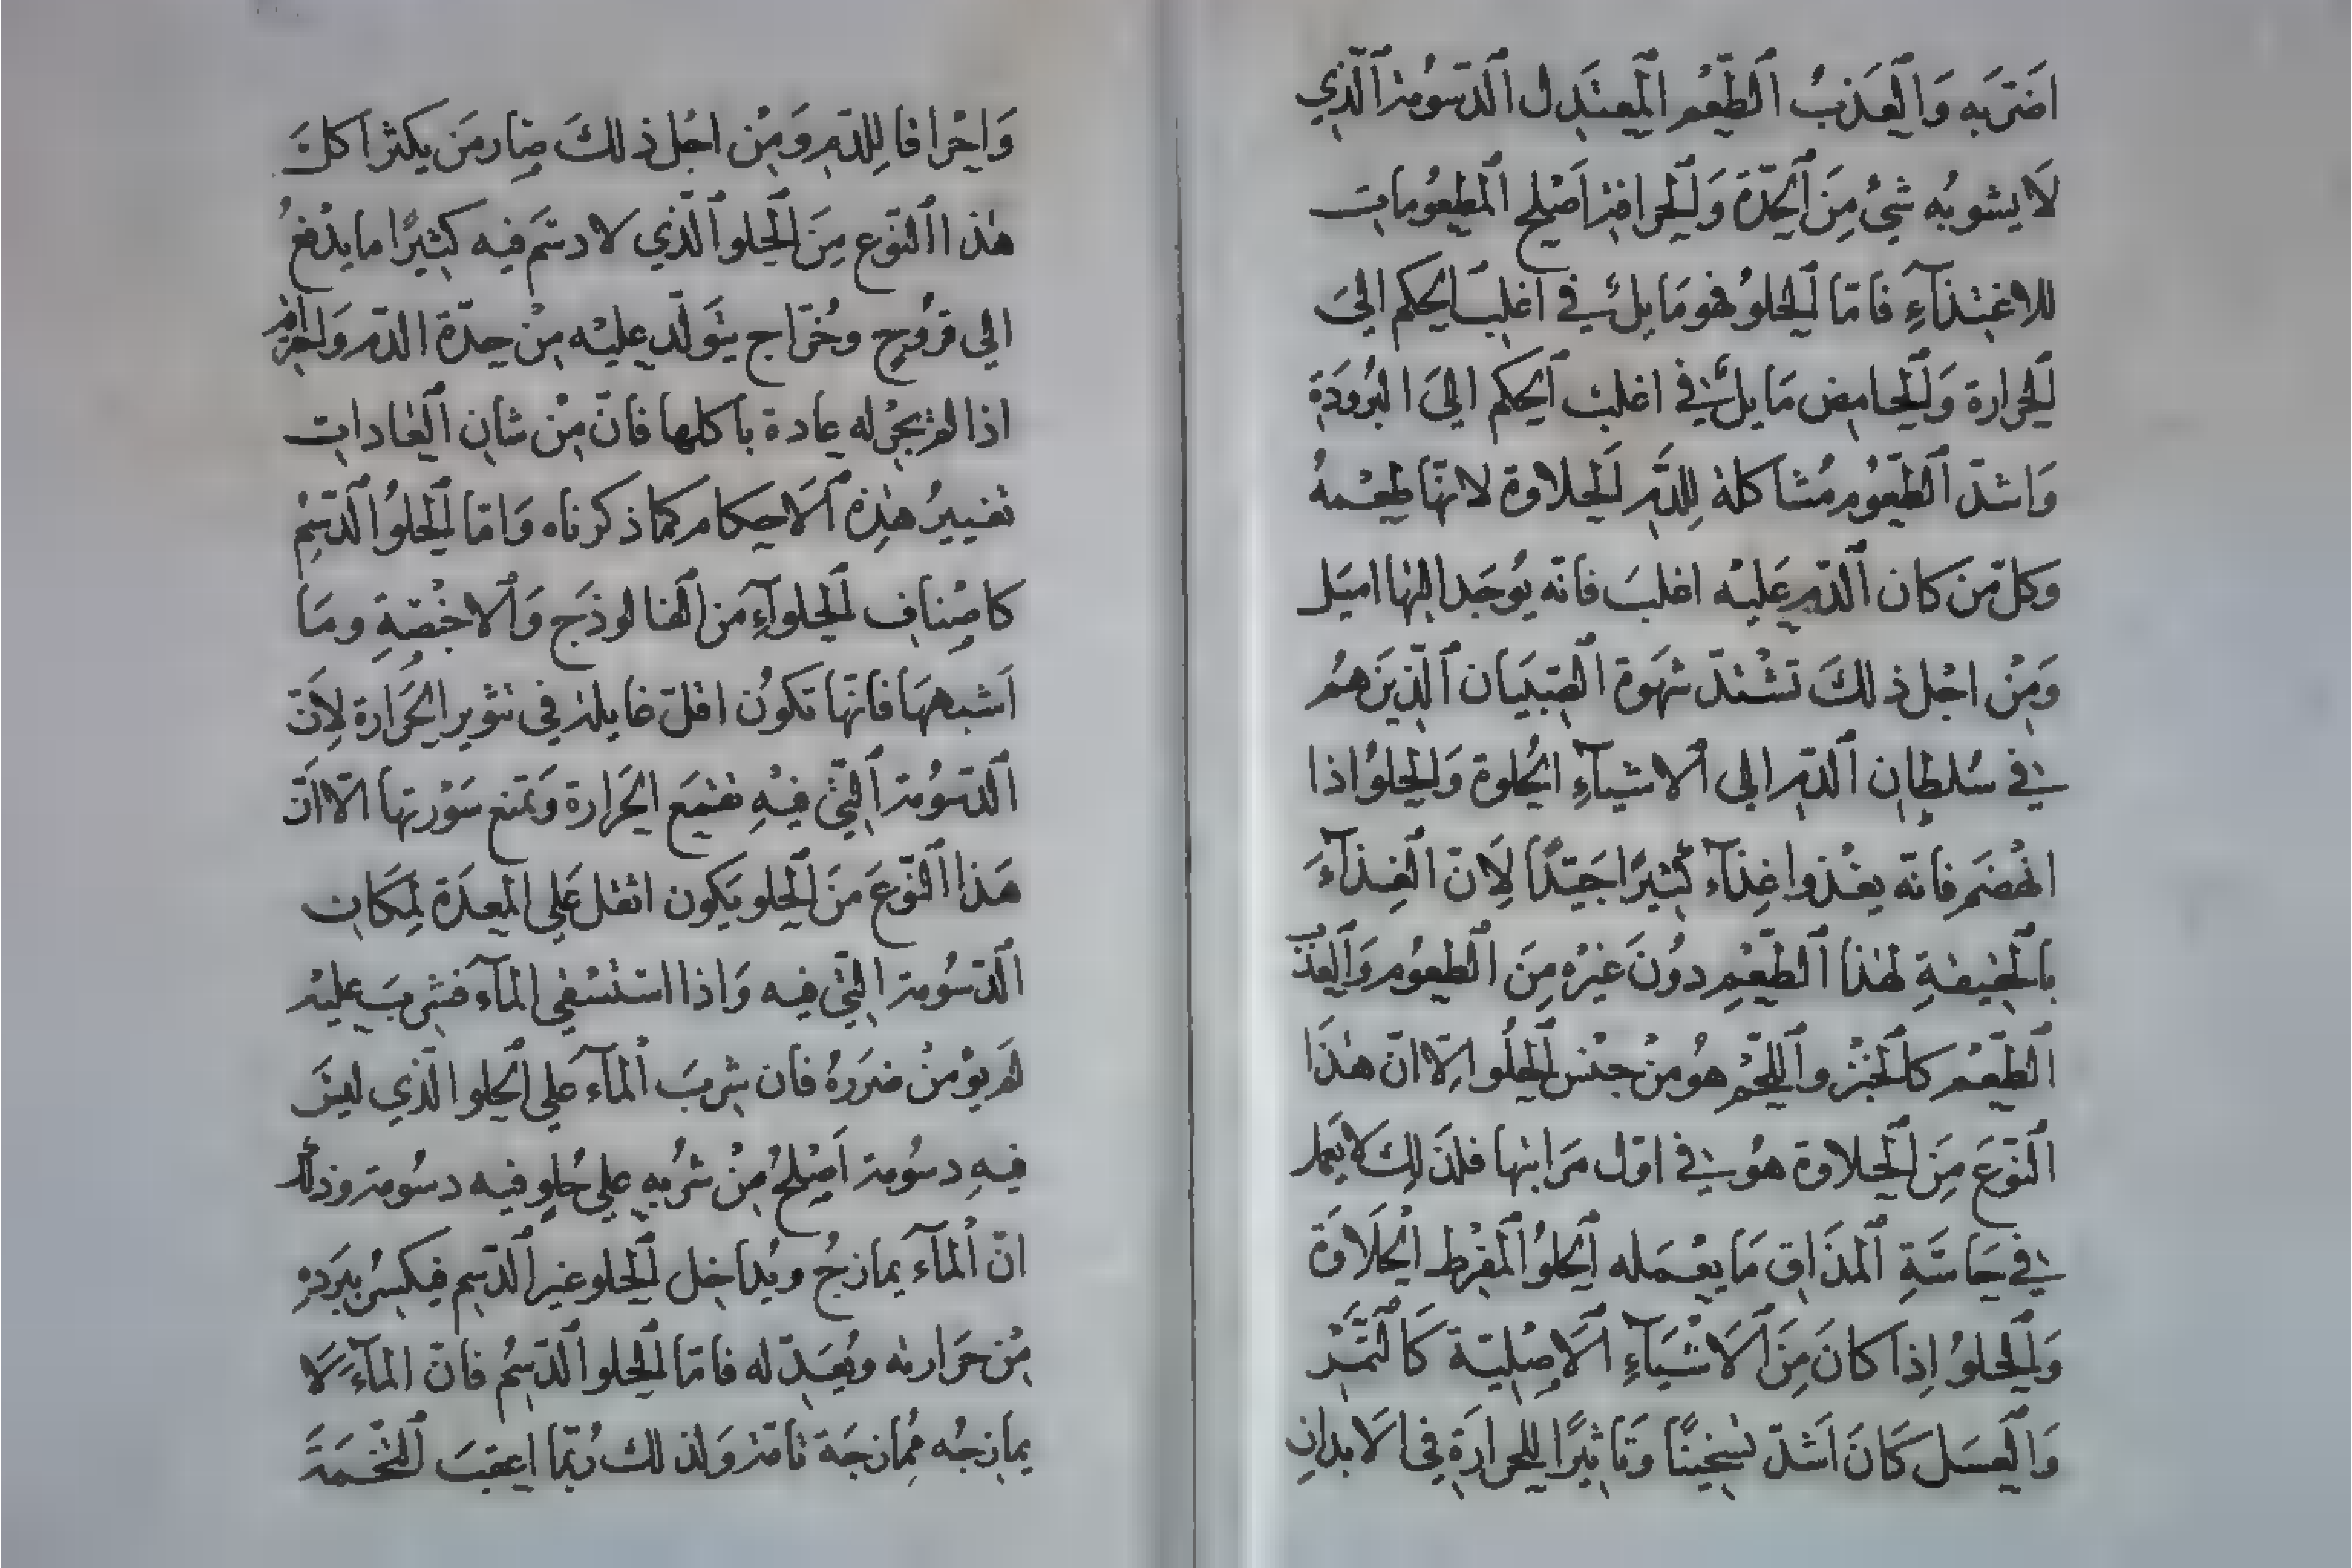 اضَرَّ به وَالْعَذبُ الطّعْم المعتَدِل الدّسُومة الّذي
لَا يشوبُه شَيْءٌ مِنَ الْحِدّة وَالْحرافة اَصْلح المطعُومات
للاغتذآءِ فامّا الْحلوُ فهو مَا يل في اغلب الحكم الىَ
الْحرارة وَالْحامِض مَا يل في اغلب الحكم الىَ البُرودَة
وَاشدّ الطّعُوم مُشاكلة لِلدّم الْحلاوة لانهّا طعْمهُ
وكلّ مَن كان الدّم عَليْه اغلبَ فانّه يُوجَد اليْها اميَل
وَمِنْ اجْل ذلكَ تشْتدّ شَهوَة الصِّبيَان الّذينَ هُم
في سُلطان الدّم الى الاشيآءِ الحُلوة وَالْحلوُ اذا
انهضَم فانّه يغْذوا غِذآء كثيرًا جَيّدًا لِانّ الْغِذآءَ
بالْحقيقةِ لهٰذا الطّعْمِ دوُنَ غيْرِه مِنَ الطعوُم وَالْعَذْب
الطّعْم كالْخبْز واللّحْم هُو مِنْ جنْس الْحلُو الّا انّ هٰذَا
النّوعَ مِنَ الْحلاوة هُو في اوّل مَراتبها فلذَلِك لا يَعمل
في حَاسّةِ المذَاق مَا يعْمَله الحلوُ المفْرط الْحلَاوَة
وَالْحلوُ اِذا كانَ مِنَ الَاشْيَآءِ الَاصْليّة كَالتّمْر
وَالْعسَل كَانَ اَشدّ تسْخينًا وَتَاثيرًا للحرارَةِ فِى الَابدانِ
وَاحْراقا لِلدّم وَمِنْ اجْل ذلكَ صَار مَن يكثر اكلَ
هٰذا النّوْع مِنَ الْحلو الّذي لا دسَم فيه كثيرًا ما يدْفعُ
الى قرُوحٍ وخُرّاج يتَولّد عليْه مِنْ حِدّة الدّم وَلحرافته
اذا لم يجْر له عادة باكلها فانّ مِنْ شان الْعٰادات
تغييرُ هٰذِه الَاحكام كما ذكرناه وَامّا الْحلوُ الدّسِمُ
كاصْناف الْحلوآءِ مَن الفالوذَج وَالاخْبصَةِ ومَا
اَشبههَا فانّهَا تكوُن اقلّ غايلة في تثوير الْحَرارة لِاَنّ
الدّسُومة الّتي فيْهِ تقمَع الْحَرارة وَتمنع سَوْرتها الّا انّ
هَذا النّوْعَ مَن الْحلو يَكون اثقل عَلى المعدَة لمِكان
الدّسُومة الّتي فيه وَاذا استسْقي المآء فشربَ عليْه
لم يوْمنْ ضررَهُ فان شربَ المآء عَلى الْحلو الّذي ليسَ
فيهِ دسُومة اَصْلحُ مِنْ شرْبهِ على حُلوٍ فيه دسُومة وذلك
انّ المآءَ يمازجُ ويُداخِل الْحلو غير الدّسِم فيكسرُ ببَردهِ
مِنْ حَرارته ويُعَدّله فامّا الْحلو الدّسِمُ فانّ المآءَ لَا
يمازجُه مُمازجَة تامّة وَلذلك رُبّما اعقبَ التّخَمَةَ